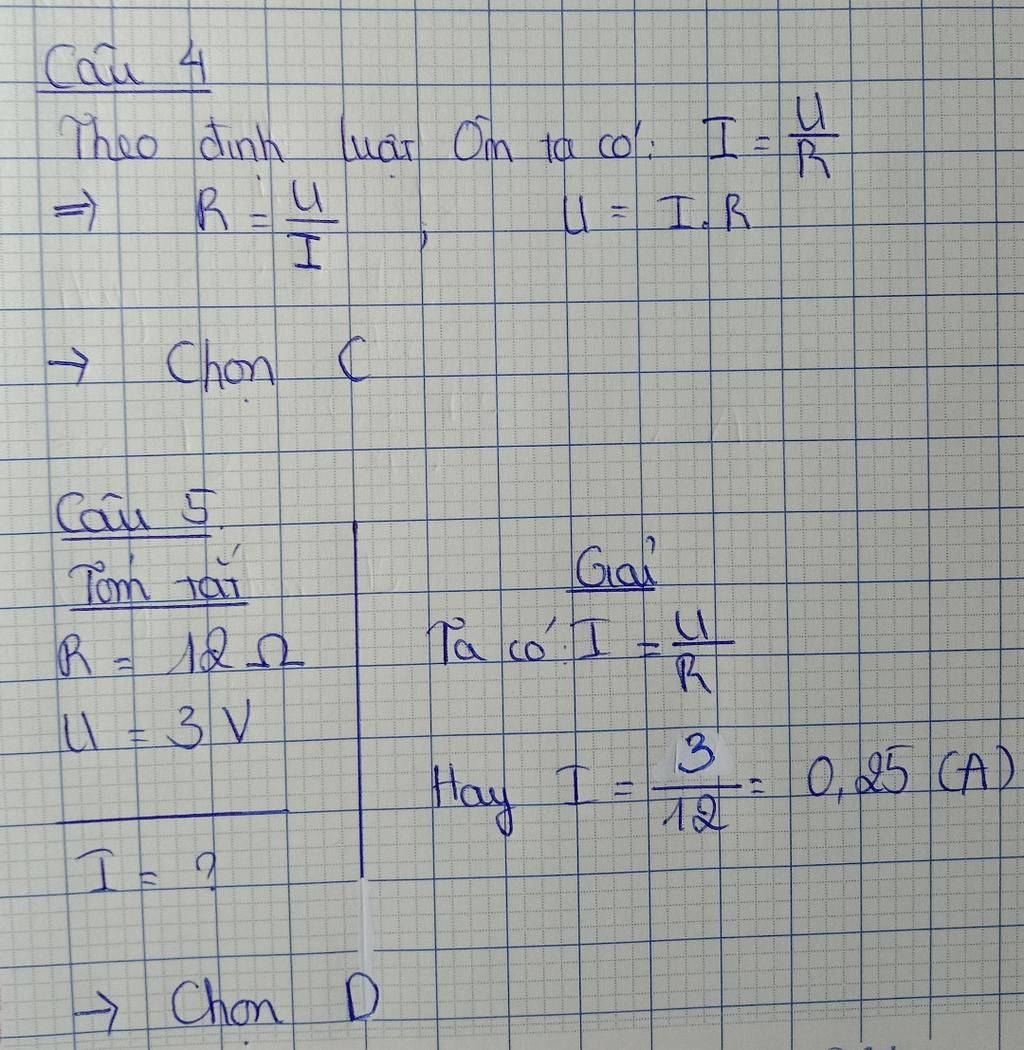 Câu 4
Theo định luật Ôm ta có: I = U/R
⇒ R = U/I , U = I.R
→ Chọn C
Câu 5.
Tóm tắt
R = 12 Ω
U = 3 V
I = ?
Giải
Ta có: I = U/R
Hay I = 3/12 = 0,25 (A)
→ Chọn D